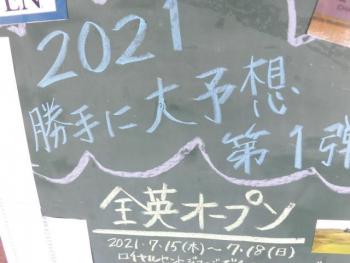 EN
2021
勝手に大予想
第1弾
全英オープン
2021.7.15(木)～7.18(日)
ロイヤルセントジョージズ